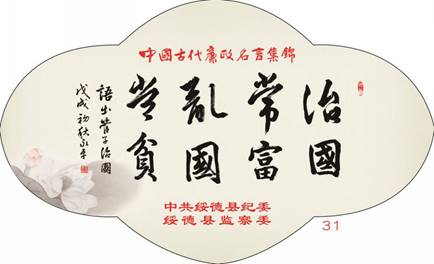 中國古代廉政名言集錦
治國
常富
亂國
常貧
語出管子治國
戊戌初秋
中共绥德县纪委
绥德县监察委
31